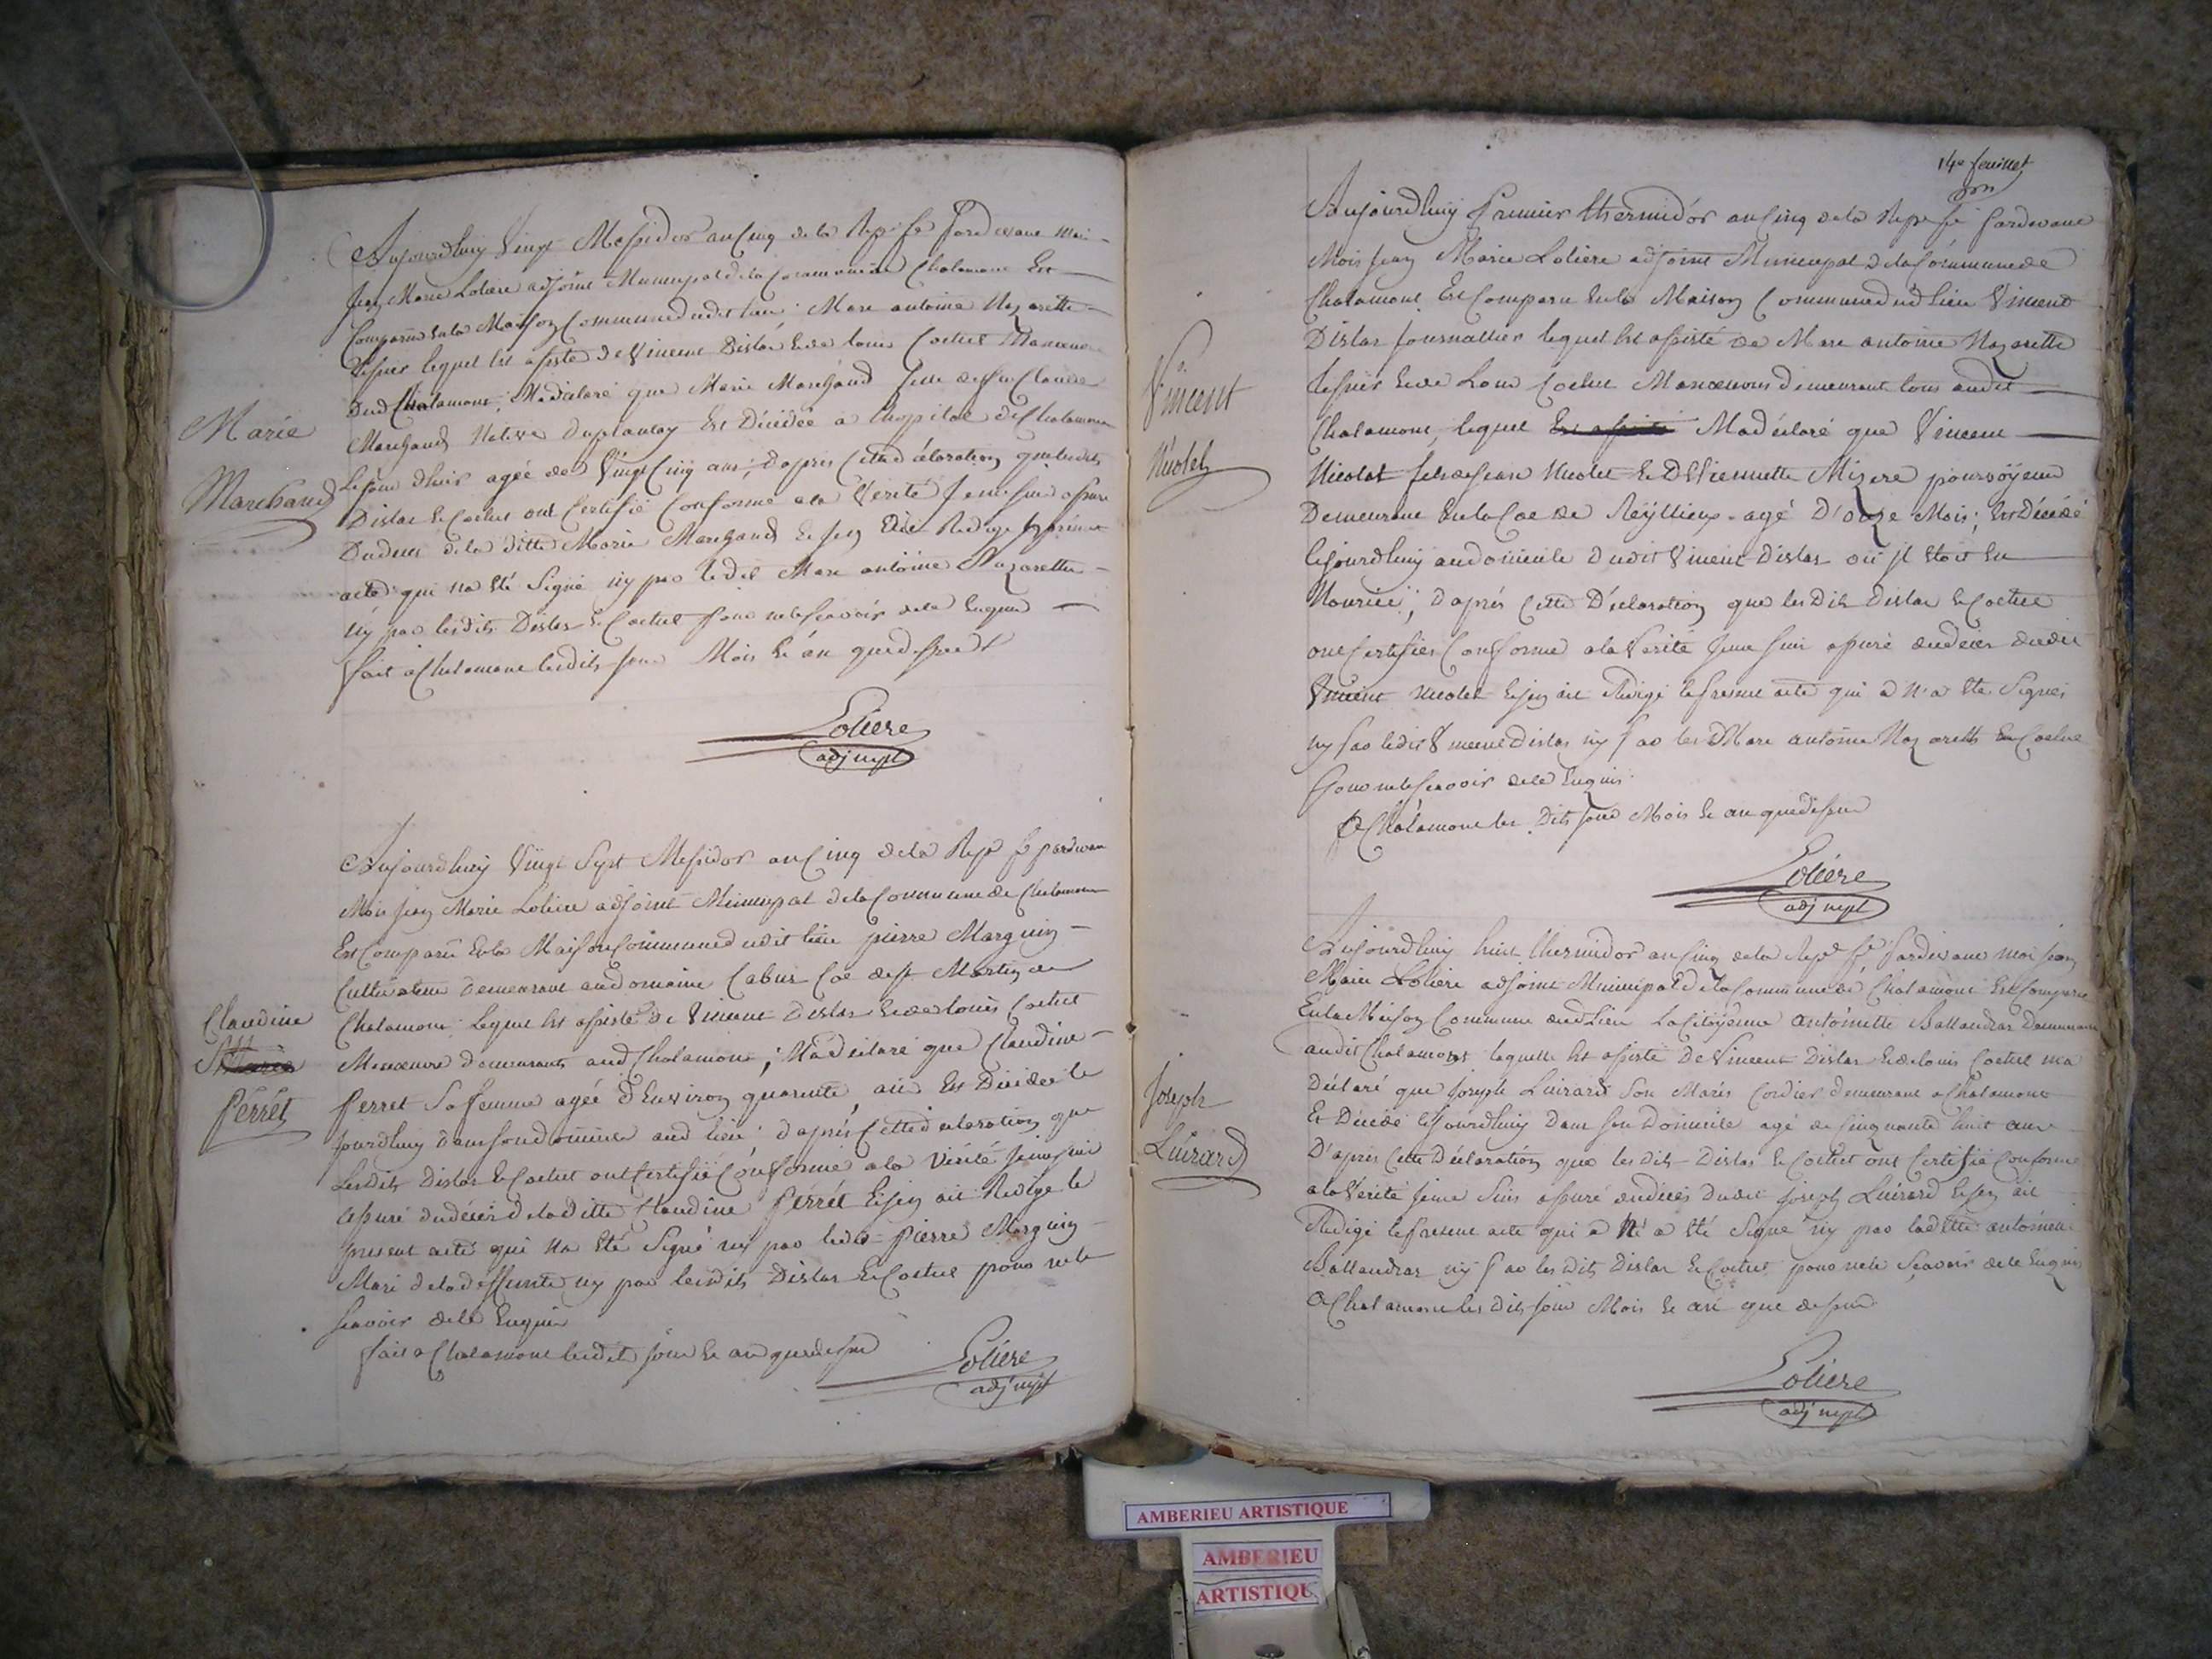 Marie
Marchand
Aujourdhuy Vingt Messidor an Cinq de la Rep. fse pardevant moi
Jean Marie Loliere adjoint Municipal de la Commune de Chalamont Est
Comparu en la Maison Commune dudit lieu Marc antoine Nazarette
lequel Est assisté de Vincent Dislas Et de louis Coctut Manoeuvre
dud Chalamont, Ma déclaré que Marie Marchand fille de feu Claude
Marchand Native duplantay Est Décédée a lhopital de Chalamont
le jour dhier agée de Vingt Cinq ans; daprès Cette déclaration que lesdits
Dislas Et Coctut ont Certifié Conforme a la Vérité Je me suis assuré
Du deces de la ditte Marie Marchand Et Jen Ai Redigé le présent
acte qui na Eté Signé ny par le dit Marc antoine Nazarette
ny par lesdits Dislas Et Coctut pour ne le scavoir de ce Enquis
fait a Chalamont lesdits jour Mois Et an que dessus
Loliere
adj mpl
Claudine
Perret
Aujourdhuy Vingt Sept Messidor an Cinq de la Rep fse pardevant
Moi Jean Marie Loliere adjoint Municipal de la Commune de Chalamont
Est Comparu En la Maison Commune dudit lieu pierre Marguin
Cultivateur demeurant au domaine Cabus Coe de St Martin de
Chalamont lequel Est assisté de Vincent Dislas Et de louis Coctut
Manoeuvre demeurants aud Chalamont, Ma déclaré que Claudine
Perret Sa femme agée dEnviron quarente ans Est Décédée le
jourdhuy dans son domicile aud lieu daprés Cette déclaration que
Lesdits Dislas Et Coctut ont Certifié Conforme a la Vérité Je me suis
assuré du décès de la ditte Claudine Perrét Et Jen ai Redigé le
present acte qui na Eté Signé ny par led pierre Marguin
Mari de la deffunte ny par lesdits Dislas Et Coctut pour ne le
scavoir de ce Enquis
fait a Chalamont lesdits jour Et an que dessus
Loliere
adj mpl
14e feuillet
Vincent
Nicolet
Aujourdhuy Premier thermidor an Cinq de la Rep fse pardevant
Mois Jean Marie Loliere adjoint Municipal de la Commune de
Chalamont Est Comparu En la Maison Commune dudit lieu Vincent
Dislas Journallier lequel Est assisté de Marc antoine Nazarette
Et de Louis Coctut Manoeuvres demeurant tous audit
Chalamont, lequel Est assisté Ma déclaré que Vincent
Nicolet fils de Jean Nicolet Et Mizere
Demeurant En la Coe de agé D'onze Mois; Est Décédé
le jourdhuy au domicile dudit Vincent Dislas où il Etoit En
Nourice; daprés Cette Déclaration que les Dits Dislas Et Coctut
ont Certifiés Conforme a la Verité Je me suis assuré du décès dudit
Vincent Nicolet Et Jen ai Rédigé le present acte qui a n'a Eté Signés
ny par ledit Vincent Dislas ny par les d Marc antoine Nazarette Et Coctut
pour ne le scavoir de ce Enquis
a Chalamont les Dits jour Mois Et an que dessus
Loliére
adj mpl
Joseph
Luirard
Aujourdhuy huit thermidor an Cinq de la Rep fse pardevant moi Jean
Marie Loliere adjoint Municipal de la Commune de Chalamont Est Comparu
En la Maison Commune dud Lieu La Citoyenne antoinette Ballandras Demeurant
audit Chalamont laquelle Est assisté de Vincent Dislas Et de louis Coctut ma
Déclaré que Joseph Luirard Son Maris Cordier demeurant a Chalamont
Et Décédé le Jourdhuy Dans Son Domicile agé de Cinquante huit ans
D'apres Cette Déclaration que les dits Dislas Et Coctut ont Certifié Conforme
a la Verité Je me Suis assuré du décès dudit Joseph Luirard Et Jen ai
Redigé le present acte qui a N'a Eté Signé ny par ladette antoinette
Ballandras ny par les dits Dislas Et Coctut pour ne le Scavoir de ce Enquis
a Chalamont les Dits jour Mois Et an que dessus
Loliere
adj mpl
AMBERIEU ARTISTIQUE
AMBERIEU
ARTISTIQU